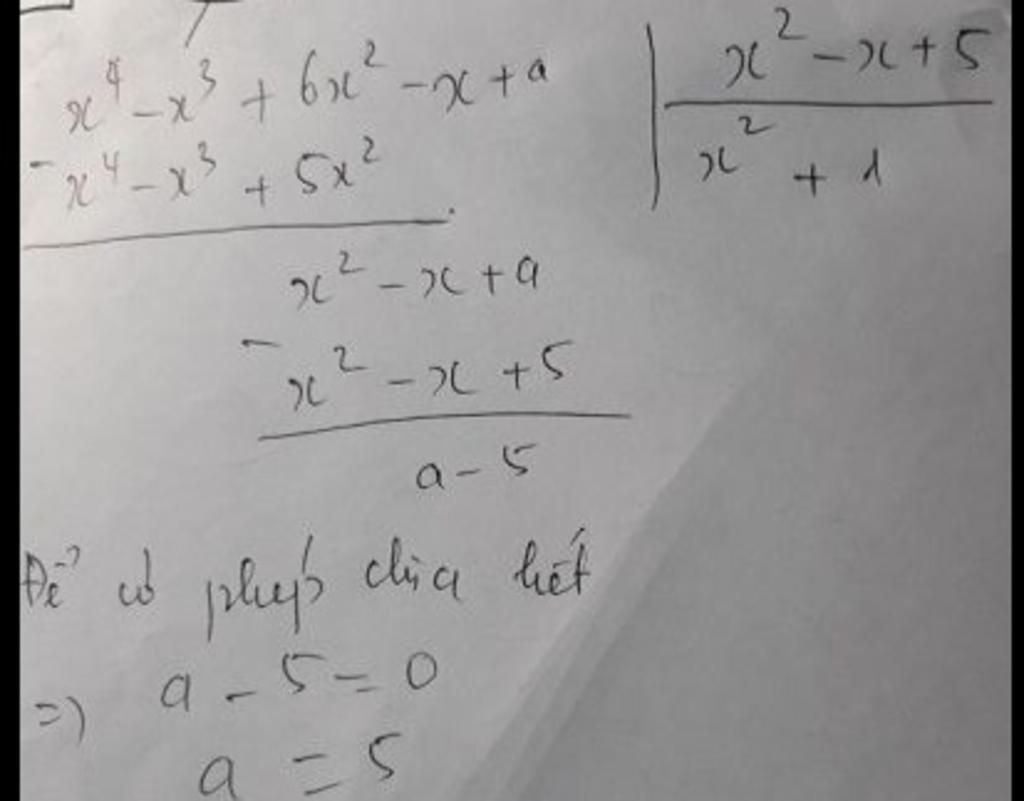 x⁴ - x³ + 6x² - x + a | x² - x + 5
- x⁴ - x³ + 5x² | x² + 1
x² - x + a
- x² - x + 5
a - 5
Để có phép chia hết
=) a - 5 = 0
a = 5